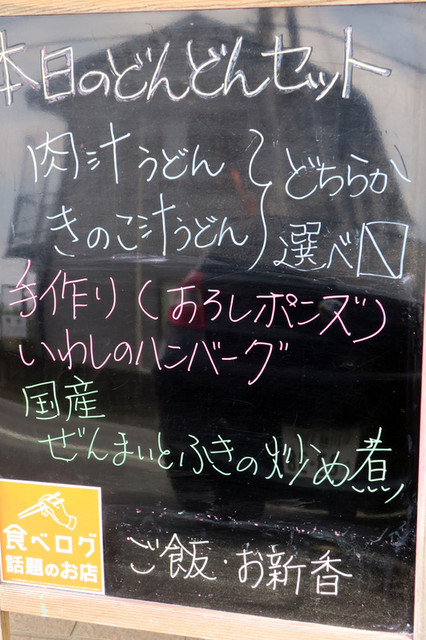 本日のどんどんセット
肉汁うどん
きのこ汁うどん
どちらか
選べ〼
手作り(おろしポンズ)
いわしのハンバーグ
国産
ぜんまいとふきの炒め煮
食べログ
話題のお店
ご飯・お新香